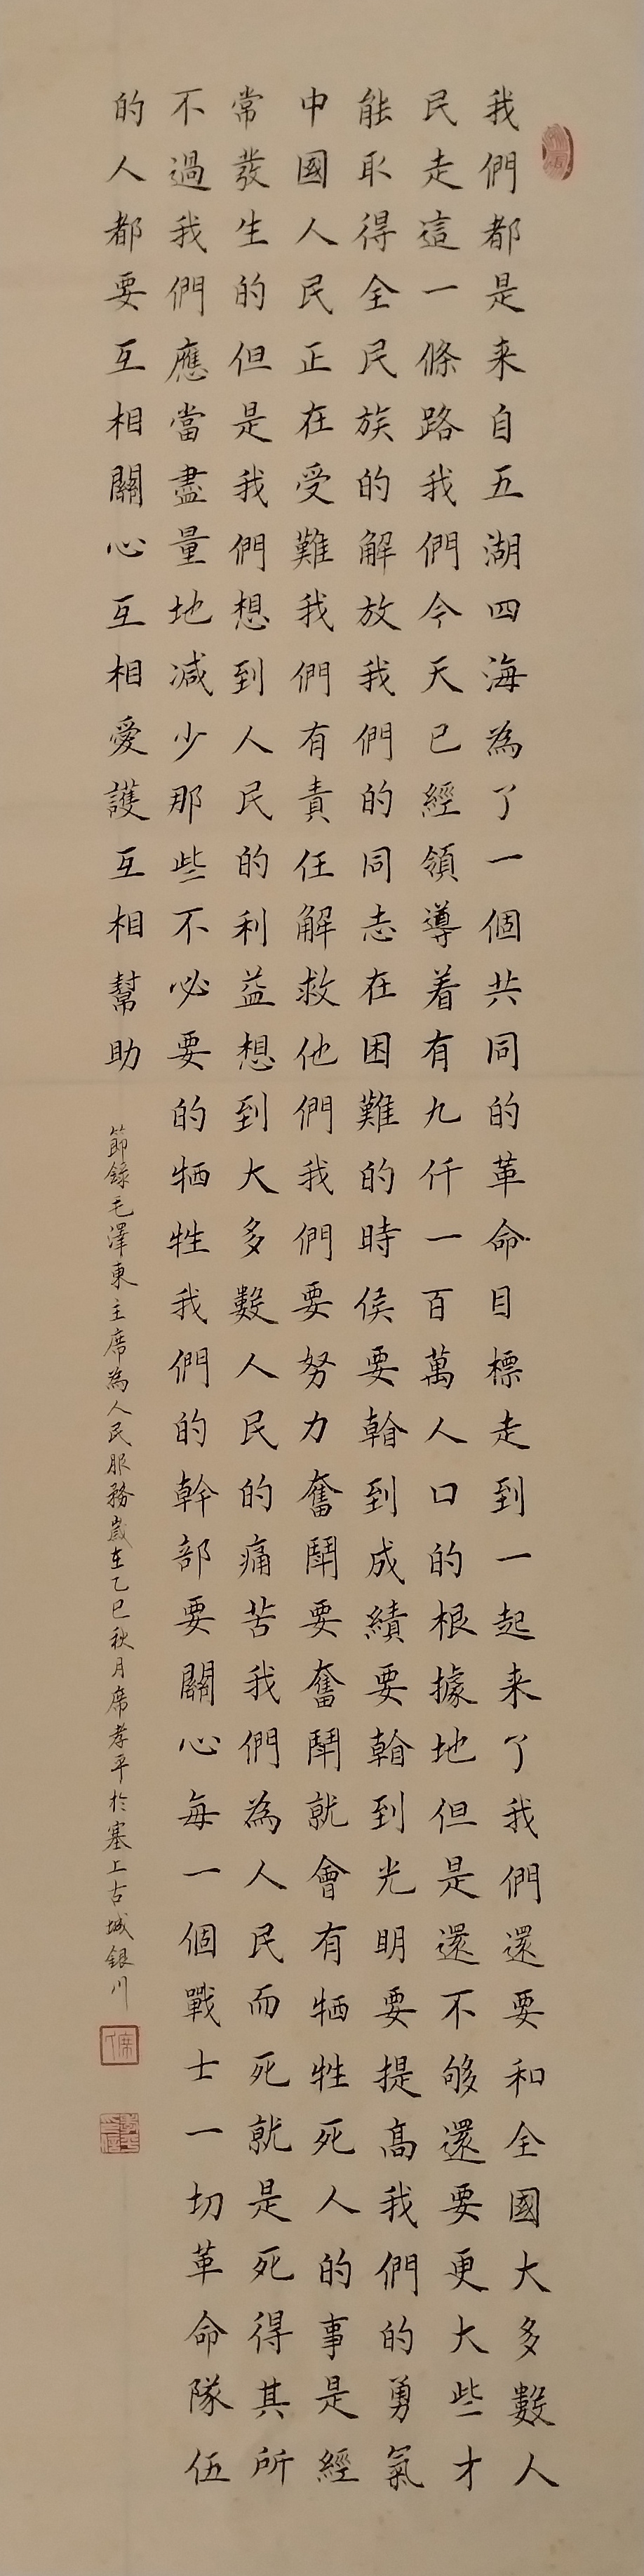 我們都是来自五湖四海為了一個共同的革命目標走到一起来了我們還要和全國大多數人
民走這一條路我們今天已經領導着有九仟一百萬人口的根據地但是還不够還要更大些才
能取得全民族的解放我們的同志在困難的時侯要看到成績要看到光明要提高我們的勇氣
中國人民正在受難我們有責任解救他們我們要努力奮鬥要奮鬥就會有牺牲死人的事是經
常發生的但是我們想到人民的利益想到大多數人民的痛苦我們為人民而死就是死得其所
不過我們應當盡量地减少那些不必要的牺牲我們的幹部要關心每一個戰士一切革命隊伍
的人都要互相關心互相愛護互相幫助
節録毛澤東主席為人民服務歲在乙巳秋月席孝平於塞上古城銀川